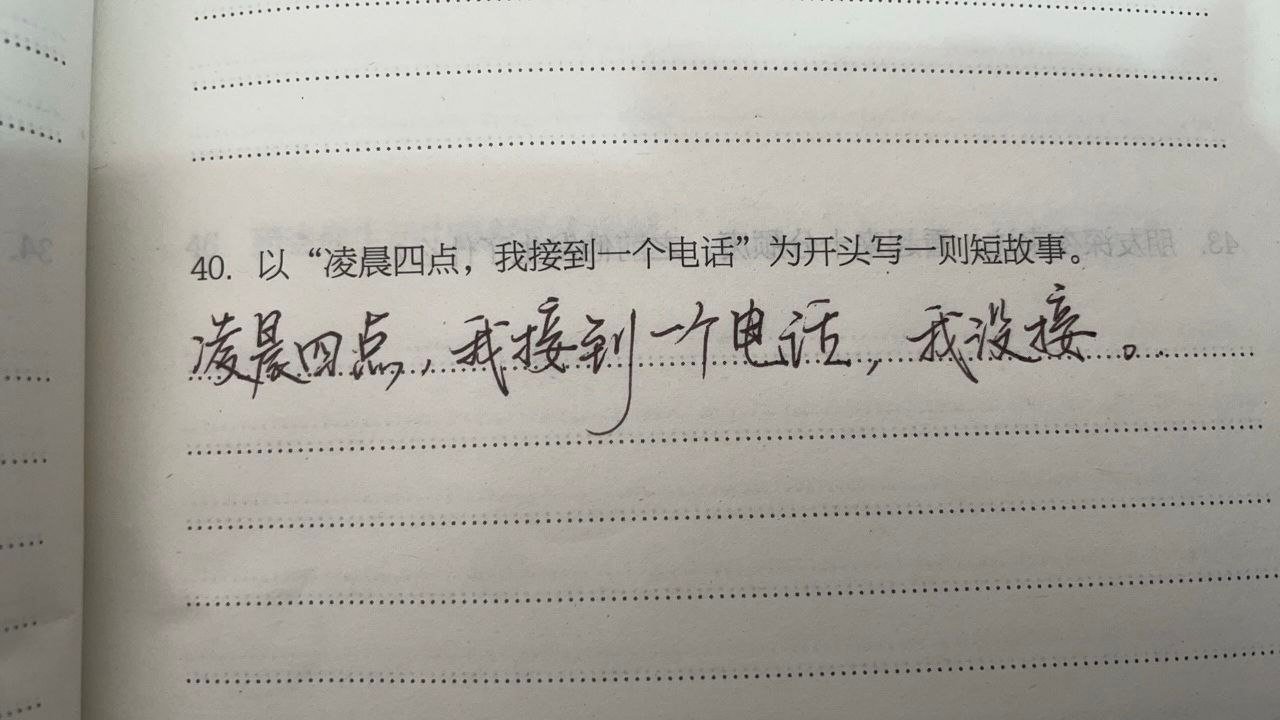 40. 以“凌晨四点，我接到一个电话”为开头写一则短故事。
凌晨四点，我接到一个电话，我没接。